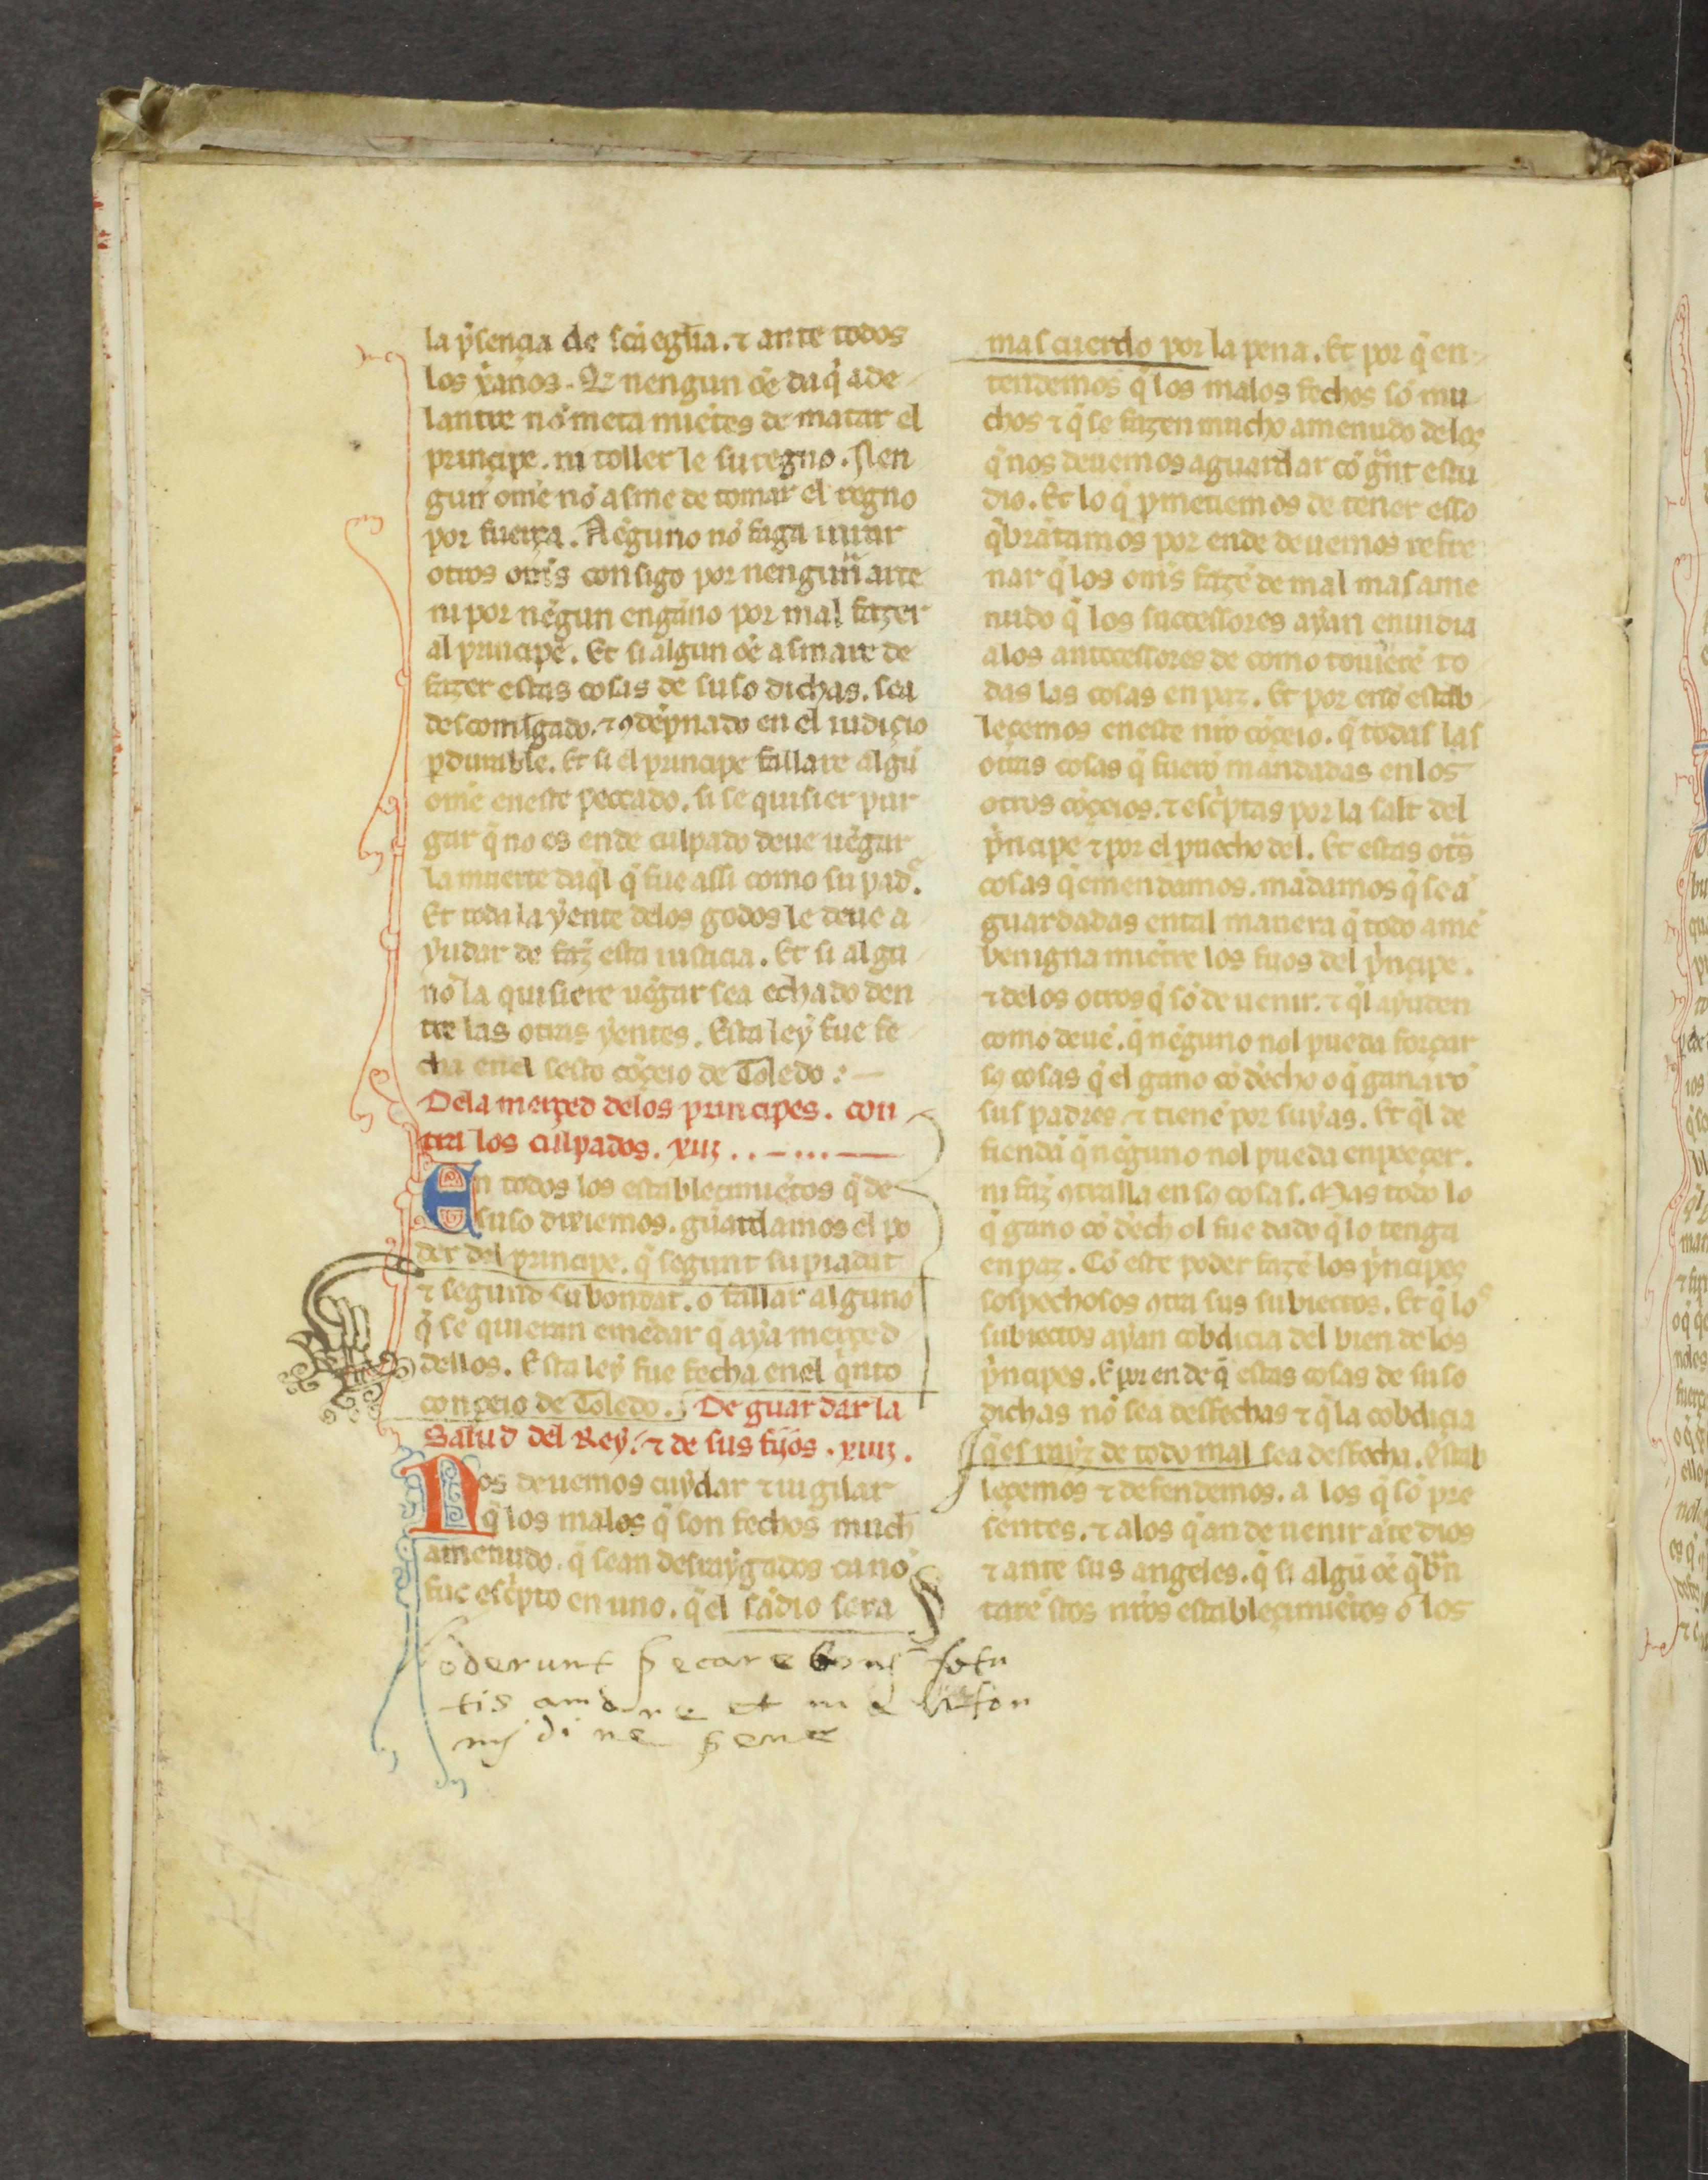 la p̃sençia de sc̃a egl̃ia. ⁊ ante todos
los xp̃anos. Q̃ nengun õe daq̃ ade
lantre nõ meta miẽtes de matar el
principe. ni toller le su regno. Nen
gun ome nõ asme de tomar el regno
por fuerça. Nẽguno nõ faga iurar
otros om̃s consigo por nenguna arte
ni por nẽgun engano por mal fazer
al principe. Et si algun õe asmare de
fazer estas cosas de suso dichas. sea
descomlgado. ⁊ ꝯdẽpnado en el iudiçio
ꝑdurable. Et si el principe fallare algũ
ome eneste peccado. si se quisier pur
gar q̃ no es ende culpado deue uẽgar
la muerte daq̃l q̃ fue assi como su padͤ.
Et toda la yente delos godos le deue a
yudar de faz̃ esta iusticia. Et si algu
nõ la quisiere uẽgar sea echado den
tre las otras yentes. Esta ley fue fe
cha enel sesto cõçeio de Toledo :-
Dela merçed delos principes. con
tra los culpados. xiij
En todos los establecimiẽtos q̃ de
suso dixiemos. guardamos el po
der del principe. q̃ segunt su piadat
⁊ segund su bondat. o fallar alguno
q̃ se quieran emẽdar q̃ aya merçed
dellos. Esta ley fue fecha enel q̃nto
conçeio de Toledo. De guardar la
Salud del Rey. ⁊ de sus fijos. xiiij.
Nos deuemos cuydar ⁊ uigilar
q̃ los malos q̃ son fechos much
amenudo. q̃ sean desraygados ca nõ
fue esc̃pto en uno. q̃ el sãdio sera
oderunt pecare boni
tis amore et
midine pene
mas cuerdo por la pena. Et por q̃ en
tendemos q̃ los malos fechos sõ mu
chos ⁊ q̃ se fazen mucho amenudo delos
q̃ nos deuemos aguardar cõ gr̃nt estu
dio. Et lo q̃ ꝓmetiemos de tener esso
q̃brãtamos por ende deuemos refre
nar q̃ los om̃s fazẽ de mal mas ame
nudo q̃ los successores ayan enuidia
alos antecessores de como touierẽ to
das las cosas en paz. Et por esto estab
leçemos eneste nr̃o cõçeio. q̃ todas las
otras cosas q̃ fuerõ mandadas enlos
otros cõçeios. ⁊ esc̃ptas por la salt del
p̃ncipe ⁊ por el ꝓuecho del. Et estas otr̃s
cosas q̃ emendamos. mãdamos q̃ seã
guardadas ental manera q̃ todo amẽ
benigna miẽtre los fiios del p̃ncipe.
⁊ delos otros q̃ sõ de uenir. ⁊ q̃l ayuden
como deuẽ. q̃ nẽguno nol pueda forçar
sꝯ cosas q̃ el gano cõ dr̃echo o q̃ ganarõ
sus padres ⁊ tienẽ por suyas. Et q̃l de
fiendã q̃ nẽguno nol pueda enpeeçer.
ni faz̃ ꝯtralla en sꝯ cosas. Mas todo lo
q̃ gano cõ dr̃ech ol fue dado q̃ lo tenga
en paz. Cõ este poder fazẽ los p̃ncipes
sospechosos ꝯtra sus subiectos. Et q̃ los
subiectos ayan cobdicia del bien de los
p̃ncipes. E por en de q̃ estas cosas de suso
dichas nõ sea desfechas ⁊ q̃ la cobdiçia
q̃ es rayz de todo mal sea desfecha. Estab
leçemos ⁊ defendemos. a los q̃ sõ pre
sentes. ⁊ alos q̃ an de uenir ãte dios
⁊ ante sus angeles. q̃ si algũ õe q̃brn
tare stos nr̃os estableçimiẽtos o los